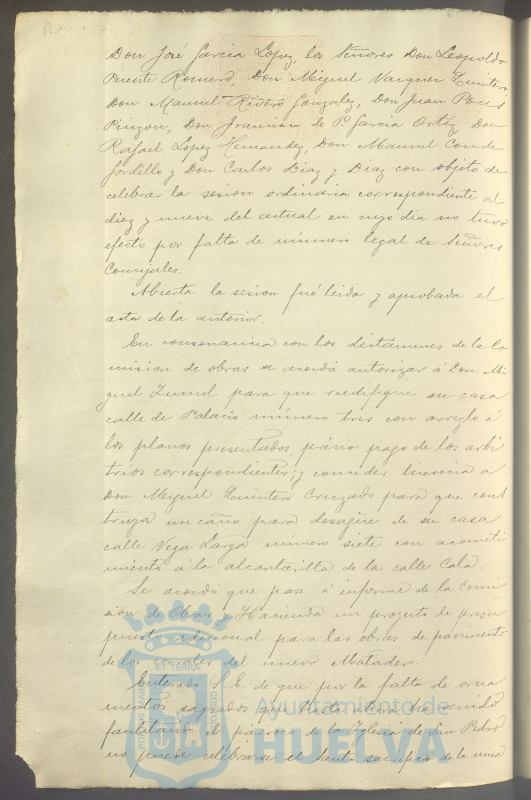 Don José García López, los Señores Don Leopoldo
Puente Romero, Don Miguel Vazquez Quintero
Don Manuel Rivero Gonzalez, Don Juan Pons
Pinzon, Don Francisco de P. Garcia Ortiz, Don
Rafael Lopez Hernandez, Don Manuel Conde
Jordillo y Don Carlos Diaz y Diaz con objeto de
celebrar la sesion ordinaria correspondiente al
diez y nueve del actual en cuyo dia no tuvo
efecto por falta de número legal de Señores
Concejales.
Abierta la sesion fué leida y aprobada el
acta de la anterior.
En consonancia con los dictámenes de la Co
mision de obras se acordó autorizar á Don Mi
guel para que reedifique su casa
calle de Palacio número tres con arreglo á
los planos presentados, prévio pago de los arbi
trios correspondientes; y conceder licencia á
Don Miguel Quintero Cruzado para que cons
truya un caño para desagüe de su casa
calle Vega Larga número siete con acometi
miento á la alcantarilla de la calle Cala.
Se acordó que pase á informe de la Comi
sión de Obras y Hacienda un proyecto de presu
puesto adicional para las obras de pavimento
de los corrales del nuevo Matadero.
Enterado S.E. de que por la falta de orna
mentos sagrados que hasta ahora ha venido
facilitando el párroco de la Iglesia de San Pedro
no puede celebrarse el Santo sacrificio de la misa
Ayuntamiento de
HUELVA